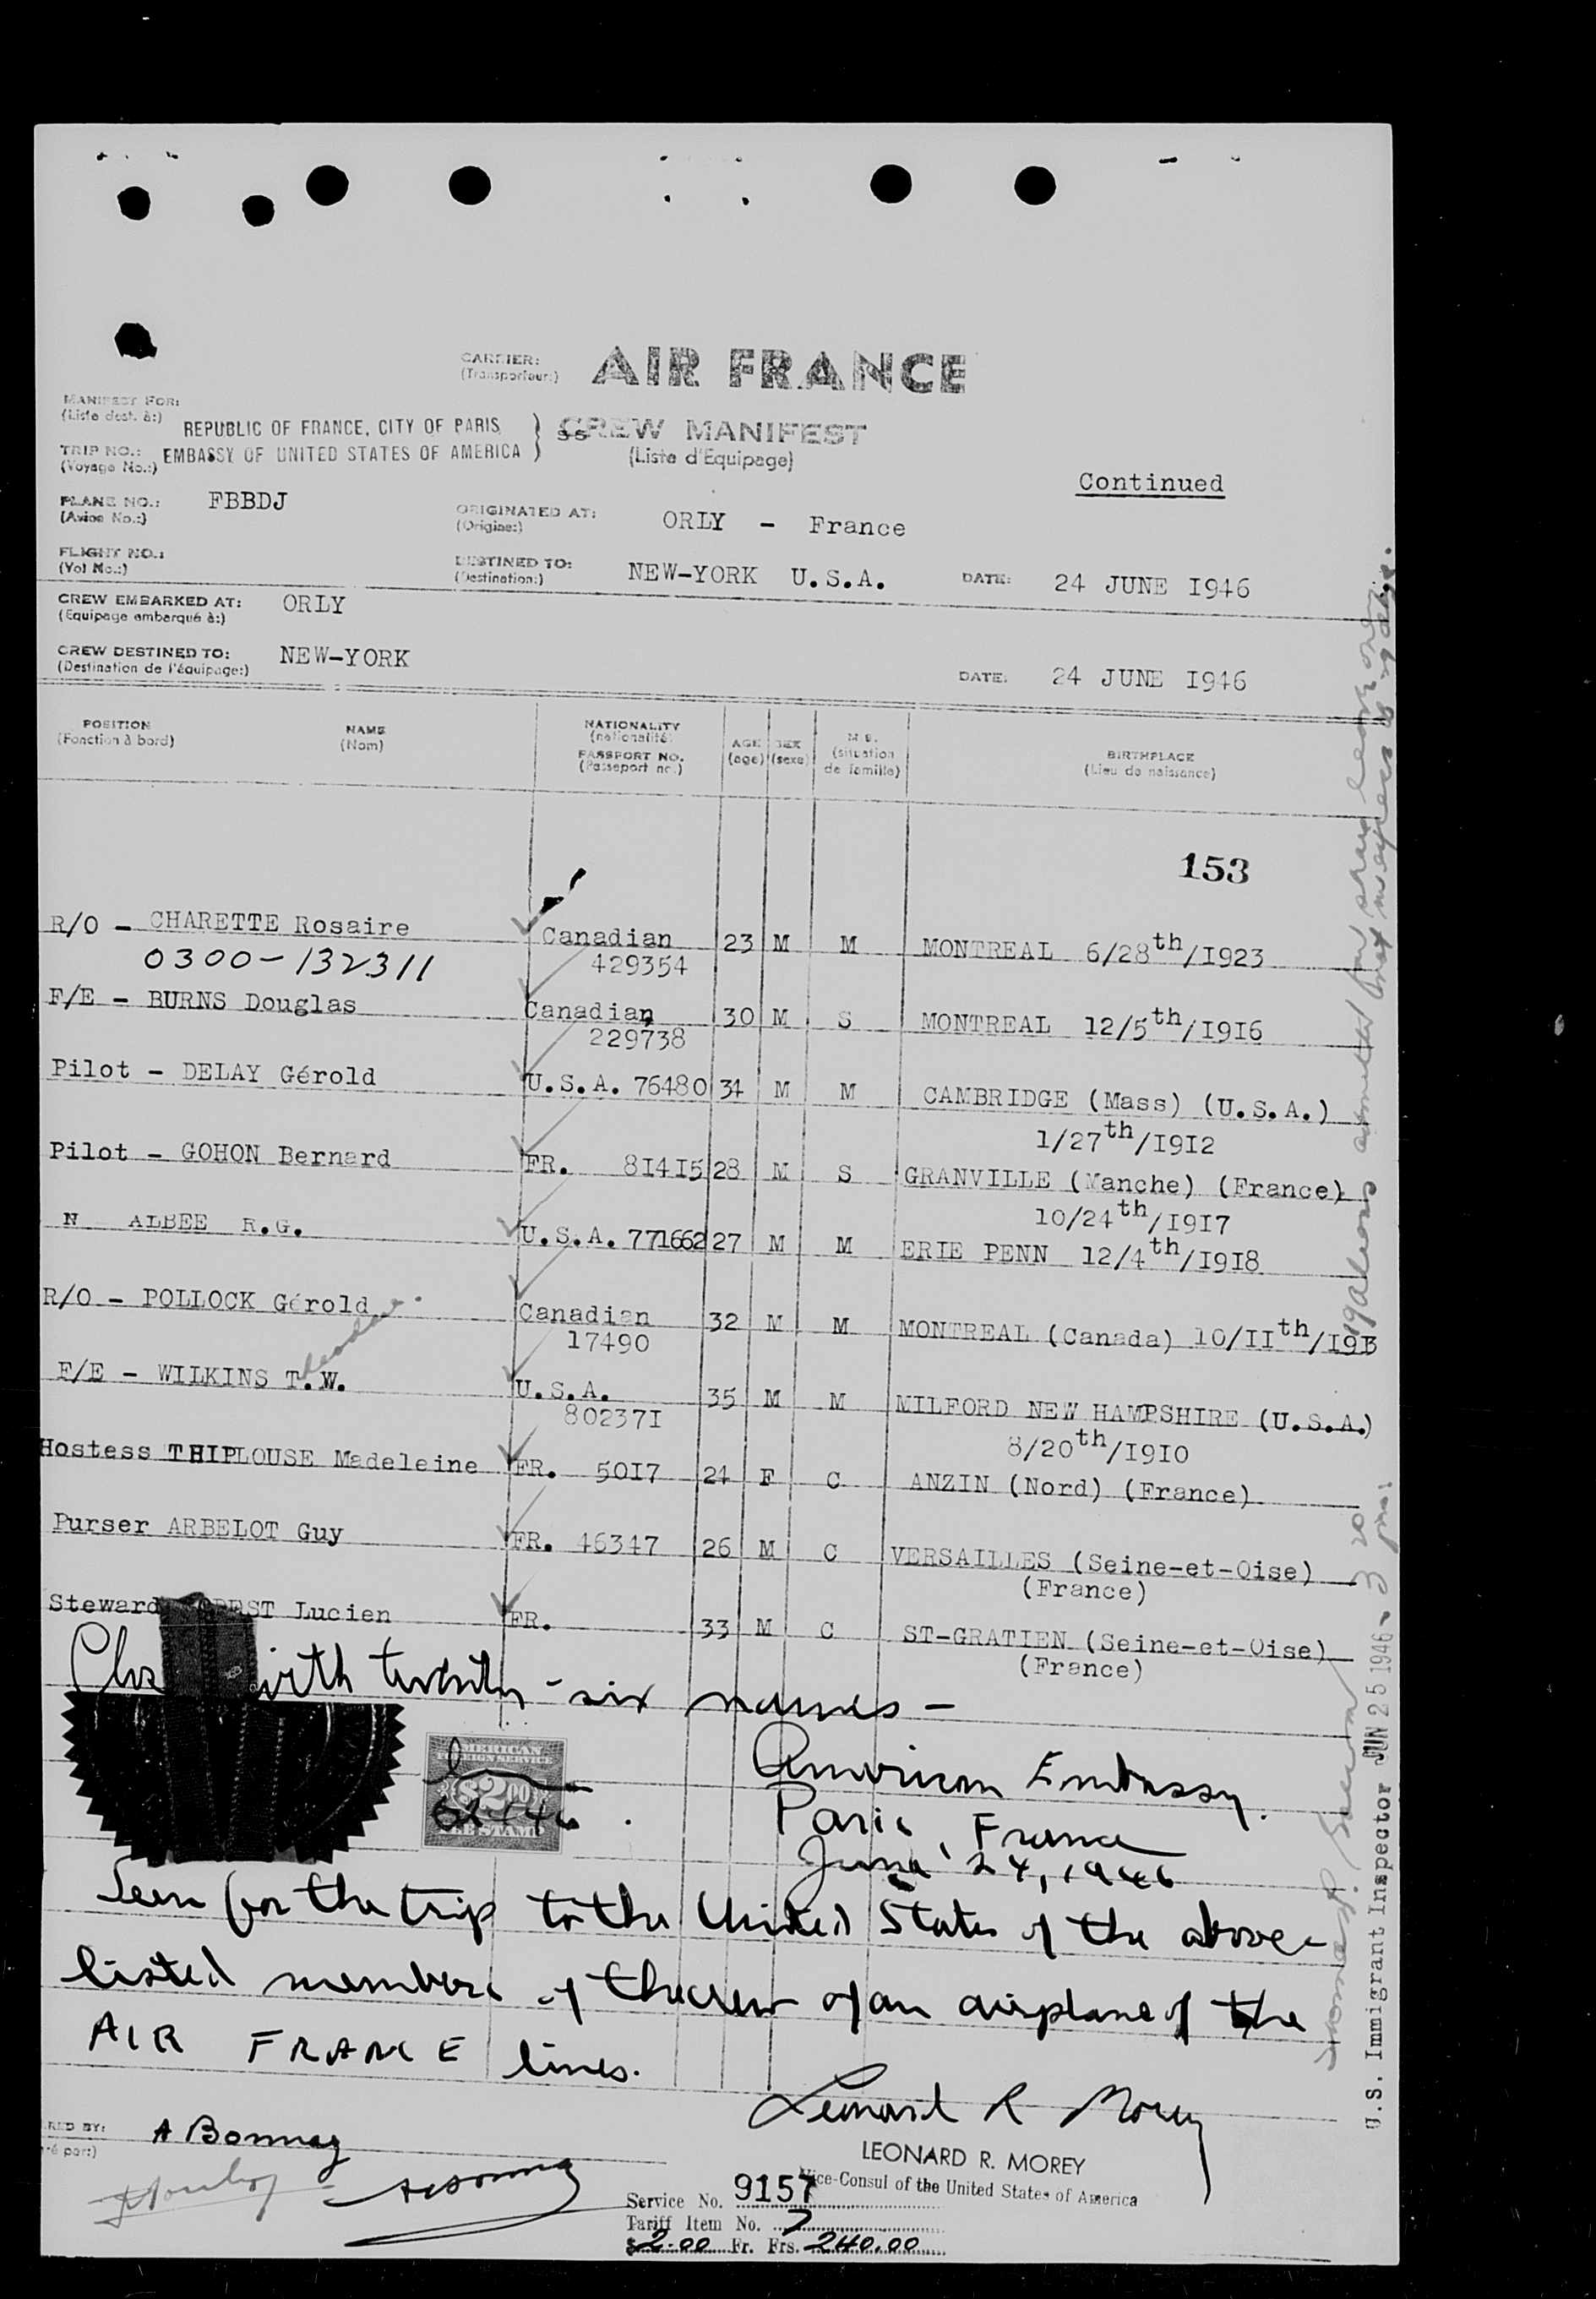 CARRIER:
(Transporteur:)
AIR FRANCE
MANIFEST FOR:
(Liste dest. à:)
REPUBLIC OF FRANCE, CITY OF PARIS
EMBASSY OF UNITED STATES OF AMERICA } SS
CREW MANIFEST
(Liste d'Equipage)
TRIP NO.:
(Voyage No.:)
Continued
PLANE NO.: FBBDJ
(Avion No.:)
ORIGINATED AT: ORLY - France
(Origine:)
FLIGHT NO.:
(Vol No.:)
DESTINED TO: NEW-YORK U.S.A. DATE: 24 JUNE I946
(Destination:)
CREW EMBARKED AT: ORLY
(Equipage embarqué à:)
CREW DESTINED TO: NEW-YORK DATE: 24 JUNE I946
(Destination de l'équipage:)
POSITION NAME NATIONALITY AGE SEX M.S. BIRTHPLACE
(Fonction à bord) (Nom) (nationalité) (age) (sexe) (situation de famille) (Lieu de naissance)
PASSPORT NO.
(Passeport no.)
153
R/O - CHARETTE Rosaire Canadian 23 M M MONTREAL 6/28th/I923
0300-132311 429354
F/E - BURNS Douglas Canadian 30 M S MONTREAL 12/5th/I9I6
229738
Pilot - DELAY Gérold U.S.A. 76480 34 M M CAMBRIDGE (Mass) (U.S.A.)
1/27th/I9I2
Pilot - GOHON Bernard FR. 8I4I5 28 M S GRANVILLE (Manche) (France)
10/24th/I9I7
N ALBEE R.G. U.S.A. 771662 27 M M ERIE PENN 12/4th/I9I8
R/O - POLLOCK Gérold Canadian 32 M M MONTREAL (Canada) 10/IIth/I9I3
17490
F/E - WILKINS T.W. U.S.A. 35 M M MILFORD NEW HAMPSHIRE (U.S.A.)
80237I 8/20th/I9I0
Hostess THIPLOUSE Madeleine FR. 50I7 24 F C ANZIN (Nord) (France)
Purser ARBELOT Guy FR. 46347 26 M C VERSAILLES (Seine-et-Oise)
(France)
Steward Lucien FR. 33 M C ST-GRATIEN (Seine-et-Oise)
(France)
with twenty-six names -
AMERICAN
FOREIGN SERVICE
$2.00
FEE STAMP
American Embassy.
Paris, France
June 24, 1946
Seen for the trip to the United States of the above-
listed members of the crew of an airplane of the
AIR FRANCE lines.
Leonard R Morey
LEONARD R. MOREY
Vice-Consul of the United States of America
RED BY: A Bonnay
ré par:)
Service No. 9157
Tariff Item No. 7
$ 2.00 Fr. Frs. 240.00
U.S. Immigrant Inspector JUN 25 1946